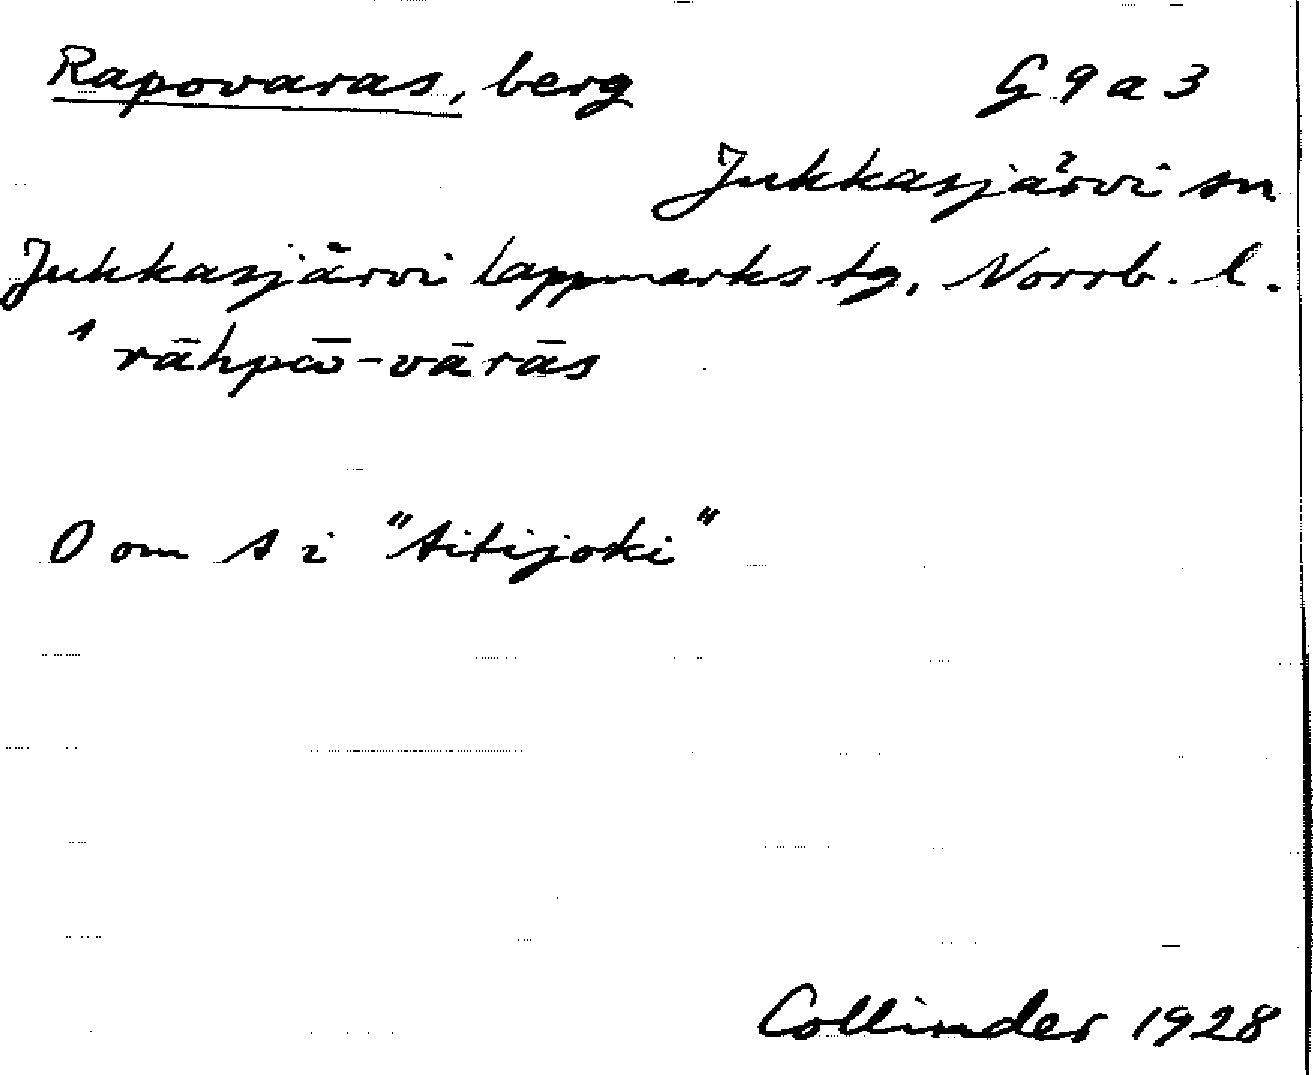 Rapovaras, berg G9a3
Jukkasjärvi sn
Jukkasjärvi lappmarks tg, Norrb. l.
rāhpɷ̄-vārās
O om s i "titijoki"
Collinder 1928